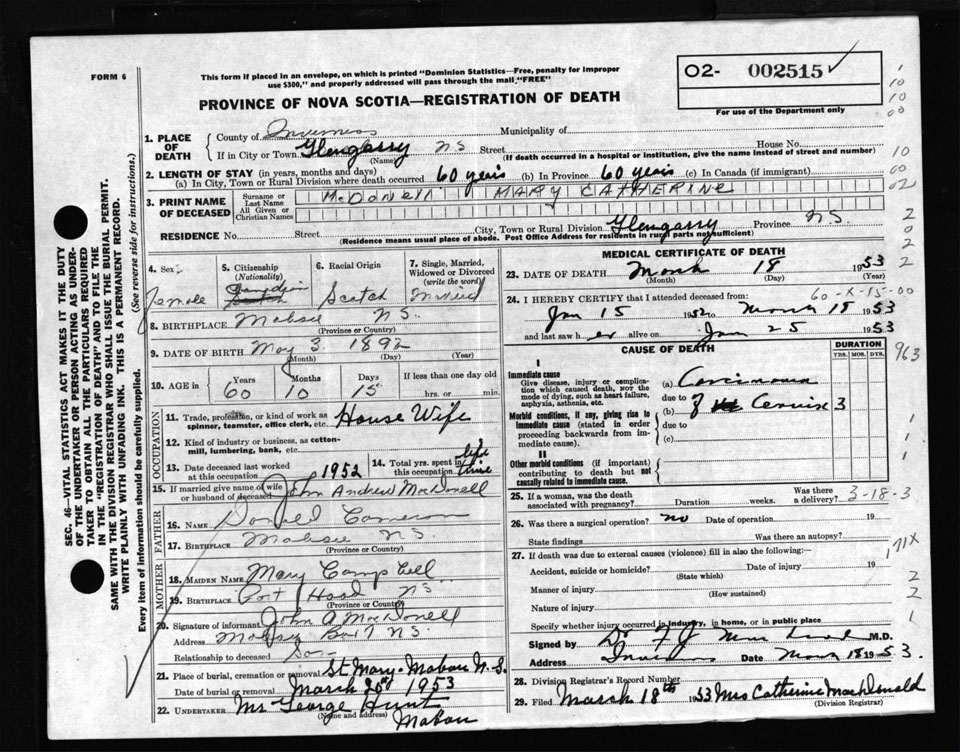 FORM 6
This form if placed in an envelope, on which is printed "Dominion Statistics—Free, penalty for improper
use $300," and properly addressed will pass through the mail "FREE"
02- 002515
For use of the Department only
PROVINCE OF NOVA SCOTIA—REGISTRATION OF DEATH
SEC. 46—VITAL STATISTICS ACT MAKES IT THE DUTY
OF THE UNDERTAKER OR PERSON ACTING AS UNDER-
TAKER TO OBTAIN ALL THE PARTICULARS REQUIRED
IN THE "REGISTRATION OF DEATH" AND TO FILE THE
SAME WITH THE DIVISION REGISTRAR WHO SHALL ISSUE THE BURIAL PERMIT.
WRITE PLAINLY WITH UNFADING INK. THIS IS A PERMANENT RECORD.
(See reverse side for instructions.)
Every item of information should be carefully supplied.
1. PLACE OF DEATH
County of Inverness Municipality of
If in City or Town Glengarry NS Street House No.
(Name) (If death occurred in a hospital or institution, give the name instead of street and number)
2. LENGTH OF STAY (in years, months and days)
(a) In City, Town or Rural Division where death occurred 60 years (b) In Province 60 years (c) In Canada (if immigrant)
3. PRINT NAME OF DECEASED
Surname or Last Name McDONEll MARY CATHERINE
All Given or Christian Names
RESIDENCE No. Street City, Town or Rural Division Glengarry Province N.S.
(Residence means usual place of abode. Post Office Address for residents in rural parts not sufficient)
4. Sex Female
5. Citizenship (Nationality) Canadian
6. Racial Origin Scotch
7. Single, Married, Widowed or Divorced (write the word) Married
8. BIRTHPLACE Mabou N.S.
(Province or Country)
9. DATE OF BIRTH May 3 1892
(Month) (Day) (Year)
10. AGE in Years Months Days If less than one day old
60 10 15 hrs. or min.
OCCUPATION
11. Trade, profession, or kind of work as
spinner, teamster, office clerk, etc. House Wife
12. Kind of industry or business, as cotton-
mill, lumbering, bank, etc.
13. Date deceased last worked
at this occupation 1952
14. Total yrs. spent in
this occupation life time
15. If married give name of wife
or husband of deceased John Andrew MacDonell
FATHER
16. NAME Donald Cameron
17. BIRTHPLACE Mabou N.S.
(Province or Country)
MOTHER
18. MAIDEN NAME Mary Campbell
19. BIRTHPLACE Port Hood NS
(Province or Country)
20. Signature of informant John A MacDonell
Address N.S.
Relationship to deceased Son
21. Place of burial, cremation or removal St Mary- Mabou N.S.
Date of burial or removal March 20 1953
22. UNDERTAKER Mr George Hunt
(Name and address) Mabou
MEDICAL CERTIFICATE OF DEATH
23. DATE OF DEATH March 18 1953
(Month) (Day) (Year)
24. I HEREBY CERTIFY that I attended deceased from: 60-X-15-00
Jan 15 1952 to March 18 1953
and last saw h er alive on Jan 25 1953
CAUSE OF DEATH
DURATION
YRS. MOS. DYS.
I
Immediate cause
Give disease, injury or complica-
tion which caused death, not the
mode of dying, such as heart failure,
asphyxia, asthenia, etc.
(a) Carcinoma
due to
Morbid conditions, if any, giving rise to
immediate cause (stated in order
proceeding backwards from im-
mediate cause).
(b) of Cervix 3
due to
(c)
II
Other morbid conditions (if important)
contributing to death but not
causally related to immediate cause.
25. If a woman, was the death
associated with pregnancy? Duration weeks. Was there
a delivery? 3-18-3
26. Was there a surgical operation? no Date of operation 19
State findings Was there an autopsy?
27. If death was due to external causes (violence) fill in also the following:—
Accident, suicide or homicide? Date of injury 19
(State which)
Manner of injury
(How sustained)
Nature of injury
Specify whether injury occurred in industry, in home, or in public place
Signed by Dr F J M.D.
Address Date March 18 1953.
28. Division Registrar's Record Number
29. Filed March 18th 1953 Mrs Catherine MacDonald
(Division Registrar)
1
10
10
00
10
00
02
2
0
2
0
2
2
963
1
1
1
171X
2
2
1